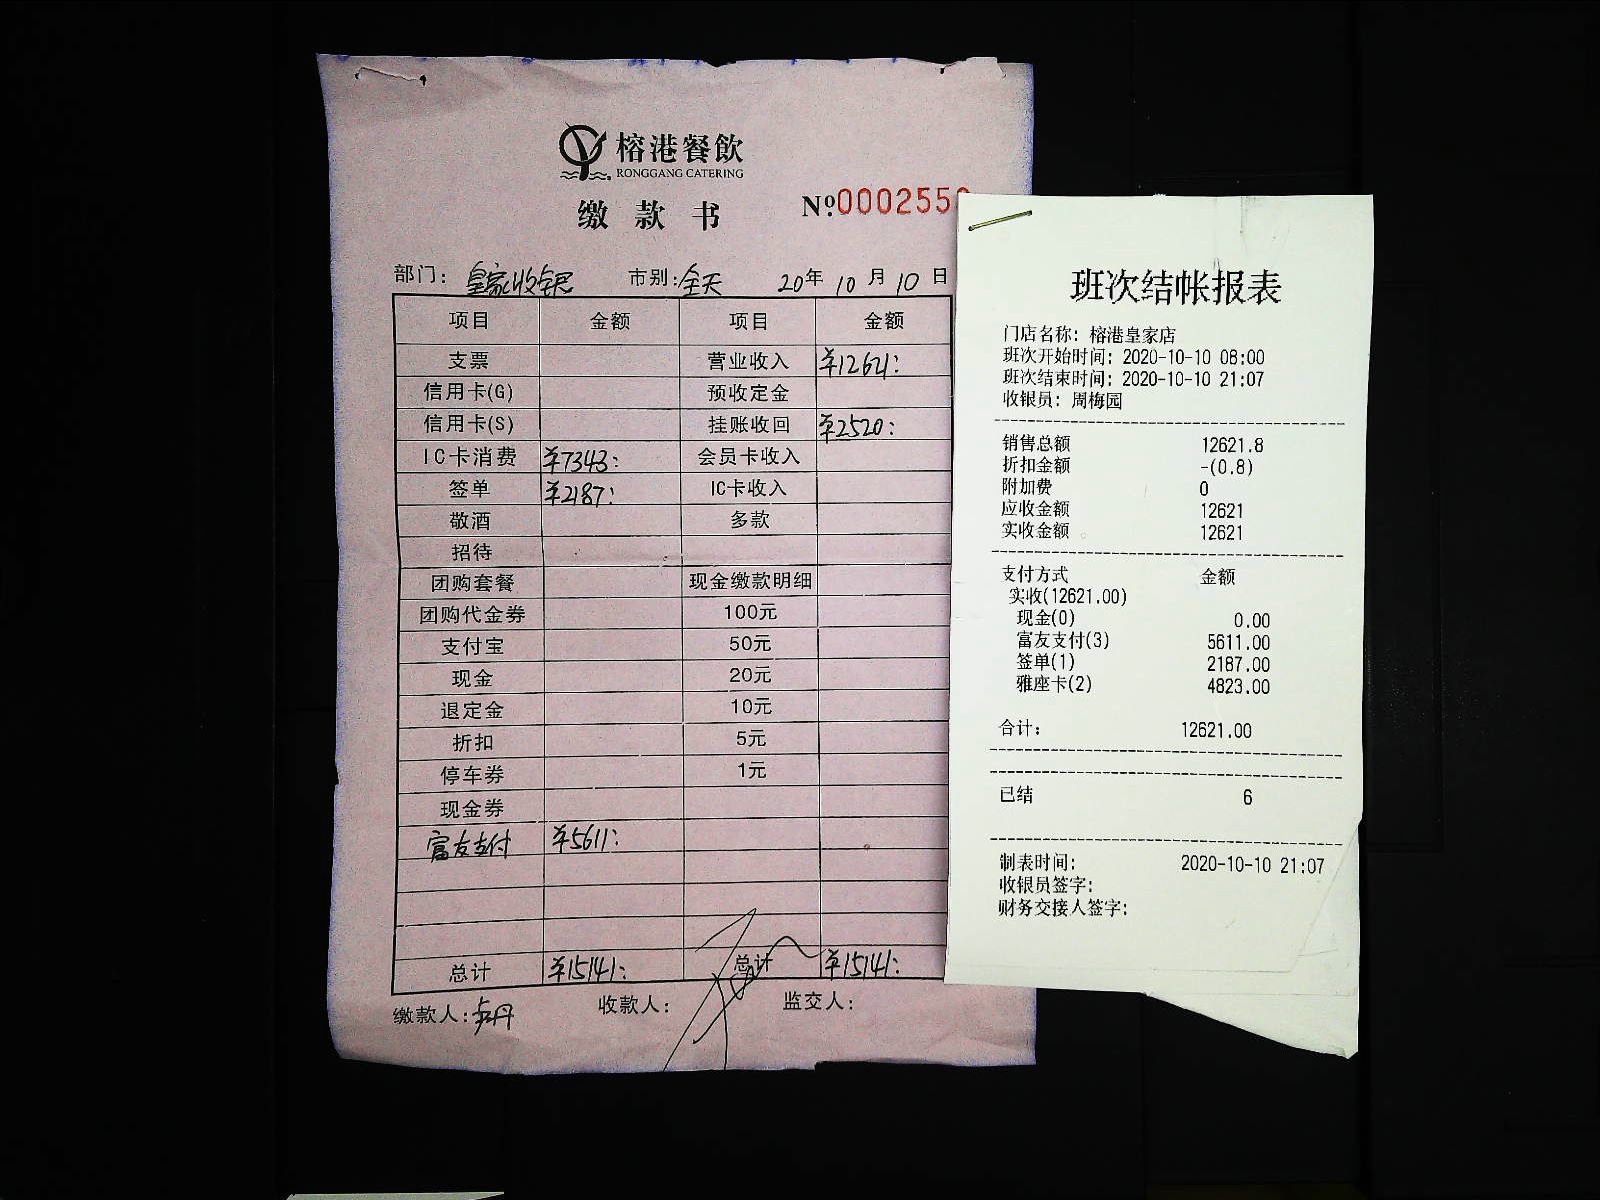 榕港餐飲
RONGGANG CATERING
缴款书
№0002550
部门：皇家收银 市别：全天 20年10月10日
项目 金额 项目 金额
支票 营业收入 ¥12621:
信用卡(G) 预收定金
信用卡(S) 挂账收回 ¥2520:
IC卡消费 ¥7343: 会员卡收入
签单 ¥2187: IC卡收入
敬酒 多款
招待
团购套餐 现金缴款明细
团购代金券 100元
支付宝 50元
现金 20元
退定金 10元
折扣 5元
停车券 1元
现金券
富友支付 ¥5611:
总计 ¥15141: 总计 ¥15141:
缴款人: 收款人: 监交人:
班次结帐报表
门店名称: 榕港皇家店
班次开始时间: 2020-10-10 08:00
班次结束时间: 2020-10-10 21:07
收银员: 周梅园
销售总额 12621.8
折扣金额 -(0.8)
附加费 0
应收金额 12621
实收金额 12621
支付方式 金额
实收(12621.00)
现金(0) 0.00
富友支付(3) 5611.00
签单(1) 2187.00
雅座卡(2) 4823.00
合计: 12621.00
已结 6
制表时间: 2020-10-10 21:07
收银员签字:
财务交接人签字: